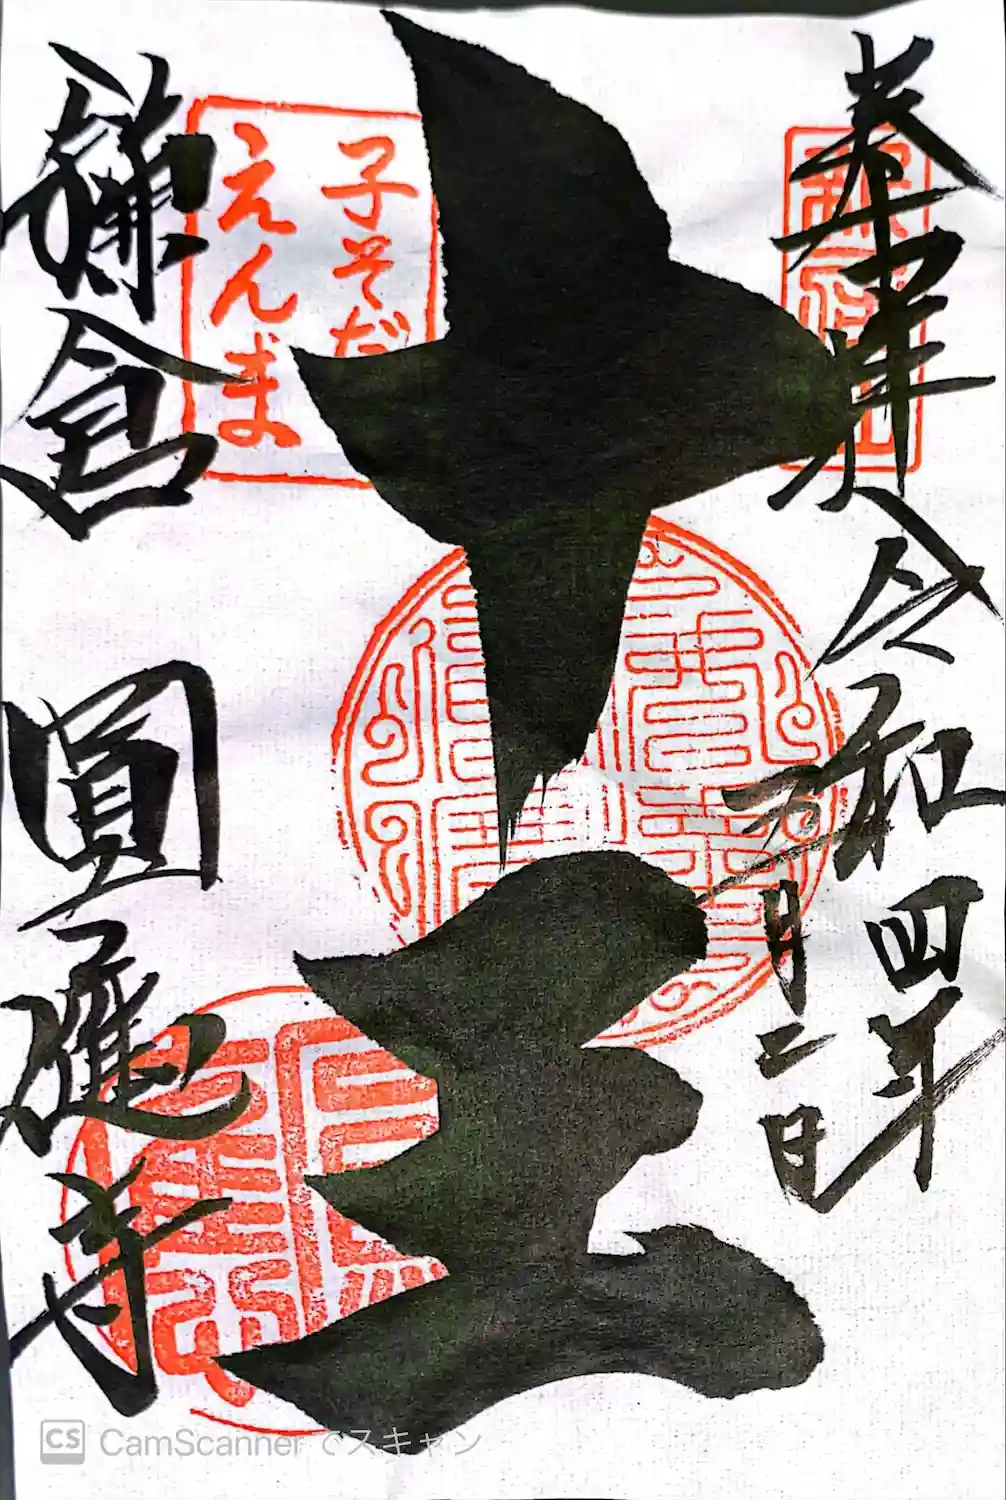 奉拝
令和四年
二日
十王
子そだ
えんま
鎌倉 圓應寺
CS CamScanner でスキャン